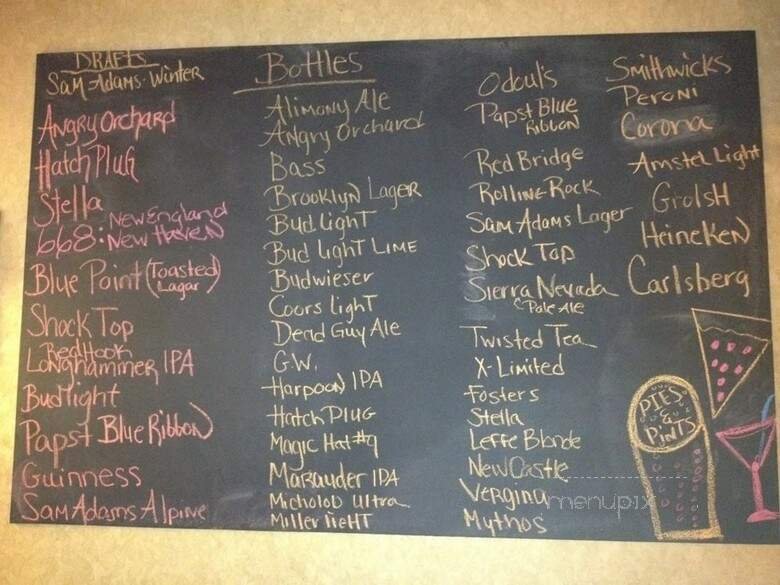 DRAFTS
Sam Adams-Winter
Angry Orchard
Hatch Plug
Stella
668: New England
New Haven
Blue Point (Toasted
Lagar)
Shock Top
Red Hook
Longhammer IPA
Bud light
Papst Blue Ribbon
Guinness
Sam Adams Alpine
Bottles
Alimony Ale
Angry Orchard
Bass
Brooklyn Lager
Bud Light
Bud Light Lime
Budwieser
Coors Light
Dead Guy Ale
G.W.
Harpoon IPA
Hatch Plug
Magic Hat #9
Marauder IPA
Micholob Ultra
Miller lieHT
Odoul's
Papst Blue
Ribbon
Red Bridge
Rolling Rock
Sam Adams Lager
Shock Top
Sierra Nevada
Pale Ale
Twisted Tea
X-Limited
Fosters
Stella
Leffe Blonde
New Castle
Vergina
Mythos
Smithwicks
Peroni
Corona
Amstel Light
Grolsh
Heineken
Carlsberg
PIES
&
PiNTS
menupix